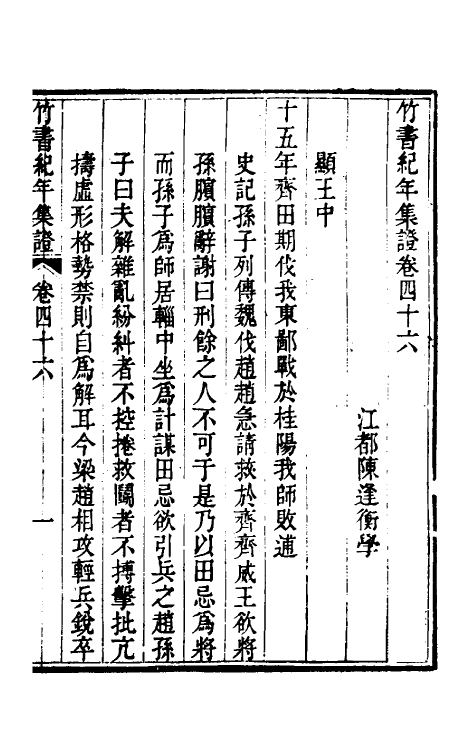 竹書紀年集證卷四十六
江都陳逢衡學
顯王中
十五年齊田期伐我東鄙戰於桂陽我師敗逋
史記孫子列傳魏伐趙趙急請救於齊齊威王欲將
孫臏臏辭謝曰刑餘之人不可于是乃以田忌爲將
而孫子爲師居輜中坐爲計謀田忌欲引兵之趙孫
子曰夫解雜亂紛糾者不控捲救鬭者不搏擊批亢
擣虛形格勢禁則自爲解耳今梁趙相攻輕兵銳卒
竹書紀年集證 卷四十六 一